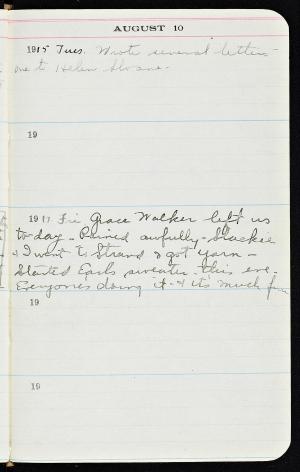 AUGUST 10
1915 Tues. Wrote several letters -
one to Helen Sloane -
19
1917 Fri Grace Walker left us
to-day - Rained awfully - Blackie
& I went to Strand & got yarn -
Started Earls sweater - this eve -
Everyone's doing it - & it's much fun
19
19